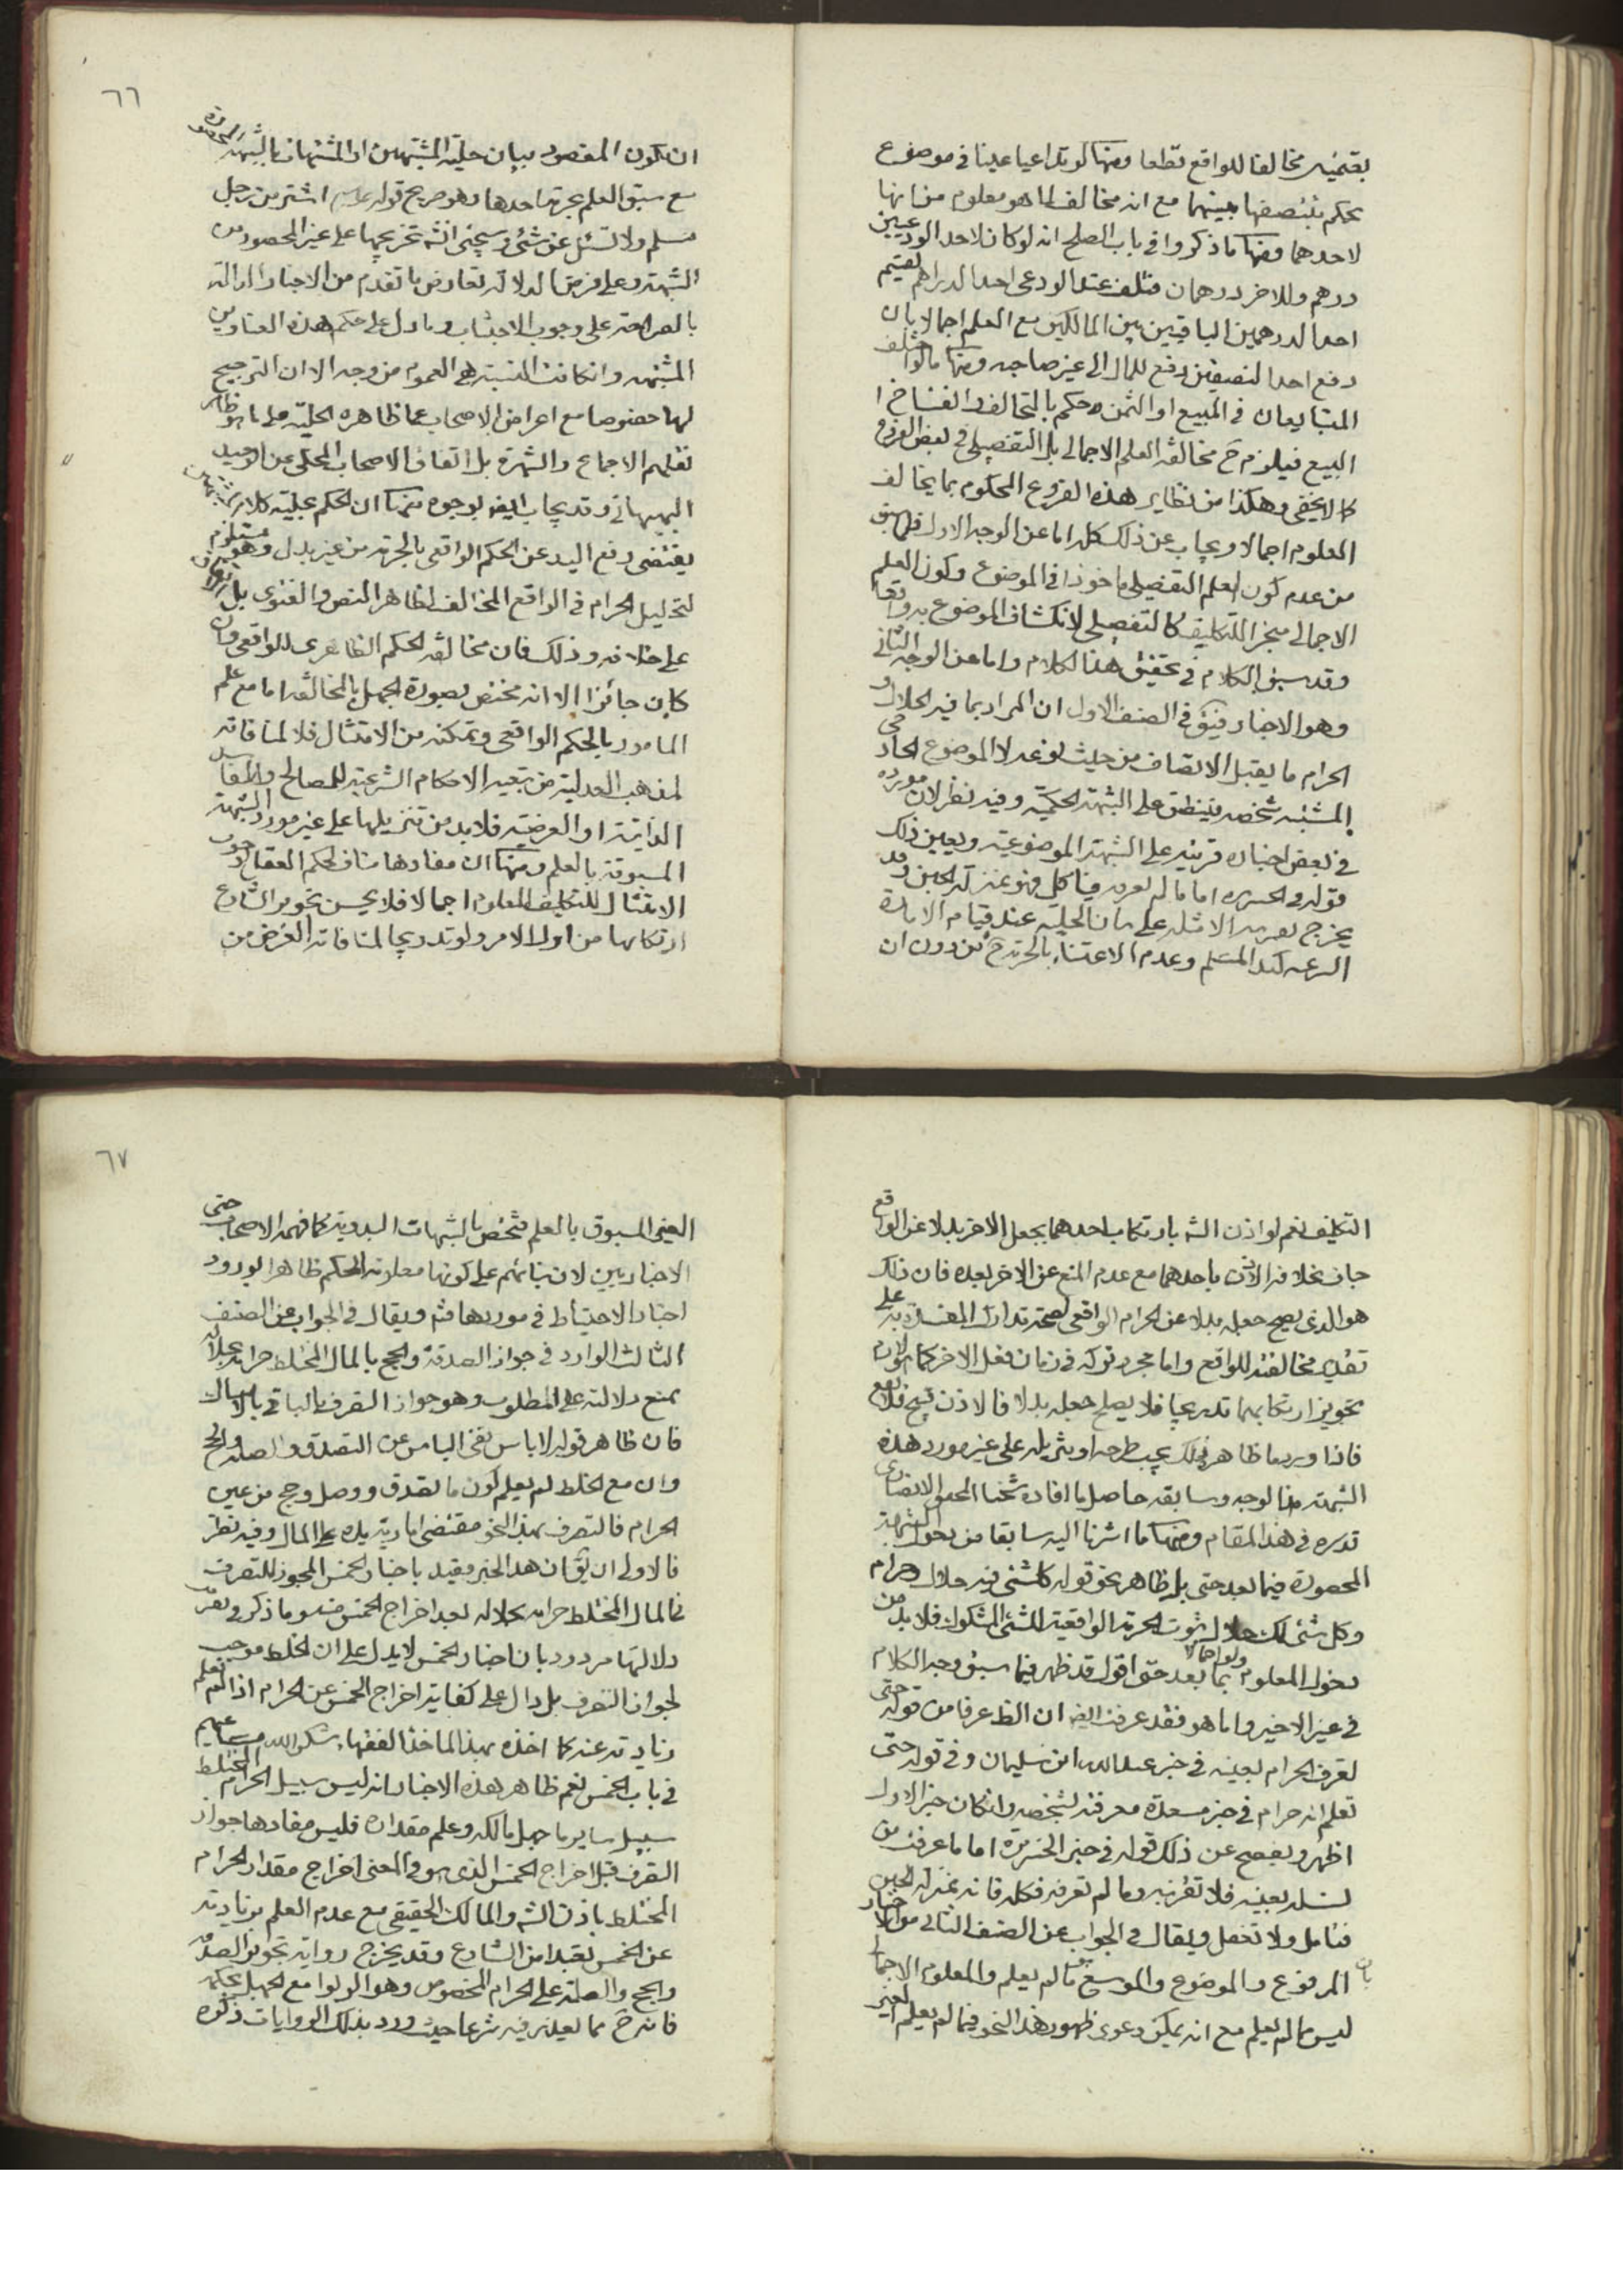 بقسميه مخالفا للواقع قطعا ومنها لو تداعيا عينا في موضوع
يحكم بتنصفها بينهما مع انه مخالف لما هو معلوم من انها
لاحدهما ومنها ما ذكروا في باب الصلح انه لو كان لاحد الودعيين
درهم وللاخر درهمان فتلف عند الودعى احد الدراهم يقسم
احد الدرهمين الباقيين بين المالكين مع العلم اجمالا بان
دفع احد النصفين دفع للمال الى غير صاحبه ومنها ما لو اختلف
المتبايعان في المبيع او الثمن وحكم بالتحالف وانفساخ
البيع فيلزم ح مخالفة العلم الاجمالى بل التفصيلى في بعض الفروض
كما لا يخفى وهكذا من نظاير هذه الفروع المحكوم بما يخالف
المعلوم اجمالا ويجاب عن ذلك كله اما عن الوجه الاول فلما سبق
من عدم كون العلم التفصيلى ماخوذا في الموضوع وكون العلم
الاجمالى منجز التكليف كالتفصيلى لانكشاف الموضوع به واقعا
وقد سبق الكلام في تحقيق هذا الكلام واما عن الوجه الثانى
وهو الاخبار فيق في الصنف الاول ان المراد بما فيه الحلال و
الحرام ما يقبل الاتصاف من حيث نوعه لا الموضوع الخارجى
المشتبه شخصه فينطبق على الشبهة الحكمية وفيه نظر لان مورده
في بعض اخباره قرينة على الشبهة الموضوعية ويعين ذلك
قوله في اما ما لم يعرفه فيها كل فهو بمنزلة الجبن وقد
يخرج بعض الامثلة على بيان الحلية عند قيام الامارة
الشرعية كيد المسلم وعدم الاعتناء بالحرمة ح من دون ان
٦٦
ان يكون المقصود بيان حلية المشتبهين او المشتبهات بالشبهة المحصورة
مع سبق العلم بحرمة احدها وهو صريح قوله اشتر من رجل
مسلم ولا تسئل عن شئ وسيجئ انشه تخريجها على غير المحصور من
الشبهة وعلى فرض الدلالة تعارض ما تقدم من الاخبار الدالة
بالصراحة على وجوب الاجتناب وما دل على حكم هذه العناوين
المشتبهة وانكانت النسبة هي العموم من وجه الا ان الترجيح
لها خصوصا مع اعراض الاصحاب عما ظاهره الحلية على ما هو ظاهر
نقلهم الاجماع والشهرة بل اتفاق الاصحاب المحكى عن الوحيد
البهبهانى وقد يجاب ايضا بوجوه منها ان الحكم بحلية كلا المشتبهين
يقتضى دفع اليد عن الحكم الواقعى بالحرمة من غير بدل وهو مستلزم
لتحليل الحرام في الواقع المخالف لظاهر النص والفتوى بل
على خلافه وذلك فان مخالفة الحكم الظاهرى للواقعى وان
كان جائزا الا انه مختص بصورة الجهل بالمخالفة اما مع علم
المامور بالحكم الواقعى وتمكنه من الامتثال فلا لمنافاته
لمذهب العدلية من تبعية الاحكام الشرعية للمصالح والمفاسد
الذاتية او العرضية فلا بد من تنزيلها على غير مورد الشبهة
المسبوقة بالعلم ومنها ان مفادها مناف لحكم العقل بوجوب
الامتثال للتكليف المعلوم اجمالا فلا يحسن تجويز الشارع
ارتكابها من اول الامر ولو تدريجا لمنافاته الغرض من
التكليف نعم لو اذن الشه بارتكاب احدهما بجعل الاخر بدلا عن الواقع
جاز بخلافه الاذن باحدهما مع عدم المنع عن الاخر بعده فان ذلك
هو الذى يصح جعله بدلا عن الحرام الواقعى لصحة تدارك المفسدة به على
تقدير مخالفته للواقع واما مجرد تركه في زمان فعل الاخر كما هو لازم
تجويز ارتكابهما تدريجا فلا يصلح جعله بدلا فالاذن قبيح فلا يقع
فاذا ورد ما ظاهره ذلك يجب طرحه او تنزيله على غير مورد هذه
الشبهة هذا الوجه وسابقه حاصل ما افاده شيخنا المحقق الانصارى
قدسره في هذا المقام ومنها ما اشرنا اليه سابقا من دخول الشبهة
المحصورة فيما بعد حتى بل ظاهر نحو قوله كل شئ فيه حلال وحرام
وكل شئ لك حلال ثبوت الحرمة الواقعية للشئ المشكوك فلا بد من
دخول المعلوم ولو اجمالا بما بعد حتى اقول قد ظهر فيما سبق وجه الكلام
في غير الاخير واما هو فقد عرفت ايضا ان الظ عرفا من قوله حتى
تعرف الحرام بعينه في خبر عبد الله ابن سليمان وفى قوله حتى
تعلم انه حرام في خبر مسعدة معرفته بشخصه وانكان خبر الاول
اظهر ويفصح عن ذلك قوله في خبر اما ما عرفت من
بعينه فلا تقربنه وما لم تعرفه فكله فانه بمنزلة الجبن
فتامل ولا تغفل ويقال في الجواب عن الصنف الثانى من الاخبار
بان المرفوع والموضوع والموسع فيه ما لم يعلم والمعلوم الاجمالى
ليس مما لم يعلم مع انه يمكن دعوى ظهور هذا النحو فيما لم يعلم لغير
٦٧
المعنى المسبوق بالعلم فتختص بالشبهات البدوية كما فهمه الاصحاب حتى
الاخباريين لان بنائهم على كونها معلومة الحكم ظاهرا لورود
اخبار الاحتياط في موردها فتم ويقال في الجواب عن الصنف
الثالث الوارد في جواز الصدقة والحج بالمال المختلط حرامه بحلاله
بمنع دلالته على المطلوب وهو جواز التصرف بالباقى بالامساك
فان ظاهر قوله لا باس نفى الباس عن التصدق والصلة والحج
وان مع الخلط لم يعلم كون ما تصدق ووصل وحج من عين
الحرام فالتصرف بهذا النحو مقتضى امارية يده على المال وفيه نظر
فالاولى ان يق ان هذا الخبر مقيد باخبار الخمس المجوز للتصرف
في المال المختلط حرامه بحلاله بعد اخراج الخمس منه وما ذكر في تقريب
دلالتها مردود بان اخبار الخمس لا يدل على ان الخلط موجب
لجواز التصرف بل دال على كفاية اخراج الخمس عن الحرام اذا لم تعلم
زيادته عنه كما اخذه بهذا الماخذ الفقهاء شكر الله مساعيهم
في باب الخمس نعم ظاهر هذه الاخبار انه ليس سبيل الحرام المختلط
سبيل ساير ما جهل مالكه وعلم مقداره فليس مفادها جواز
التصرف قبل اخراج الخمس الذى هو في المعنى اخراج مقدار الحرام
المختلط باذن الشه والمالك الحقيقى مع عدم العلم بزيادته
عن الخمس تعبدا من الشارع وقد يخرج رواية تجويز الصدقة
والحج والصلة على الحرام المخصوص وهو الربوا مع الجهل بحكمه
فانه ح مما يعذر فيه شرعا حيث ورد بذلك الروايات ذكره